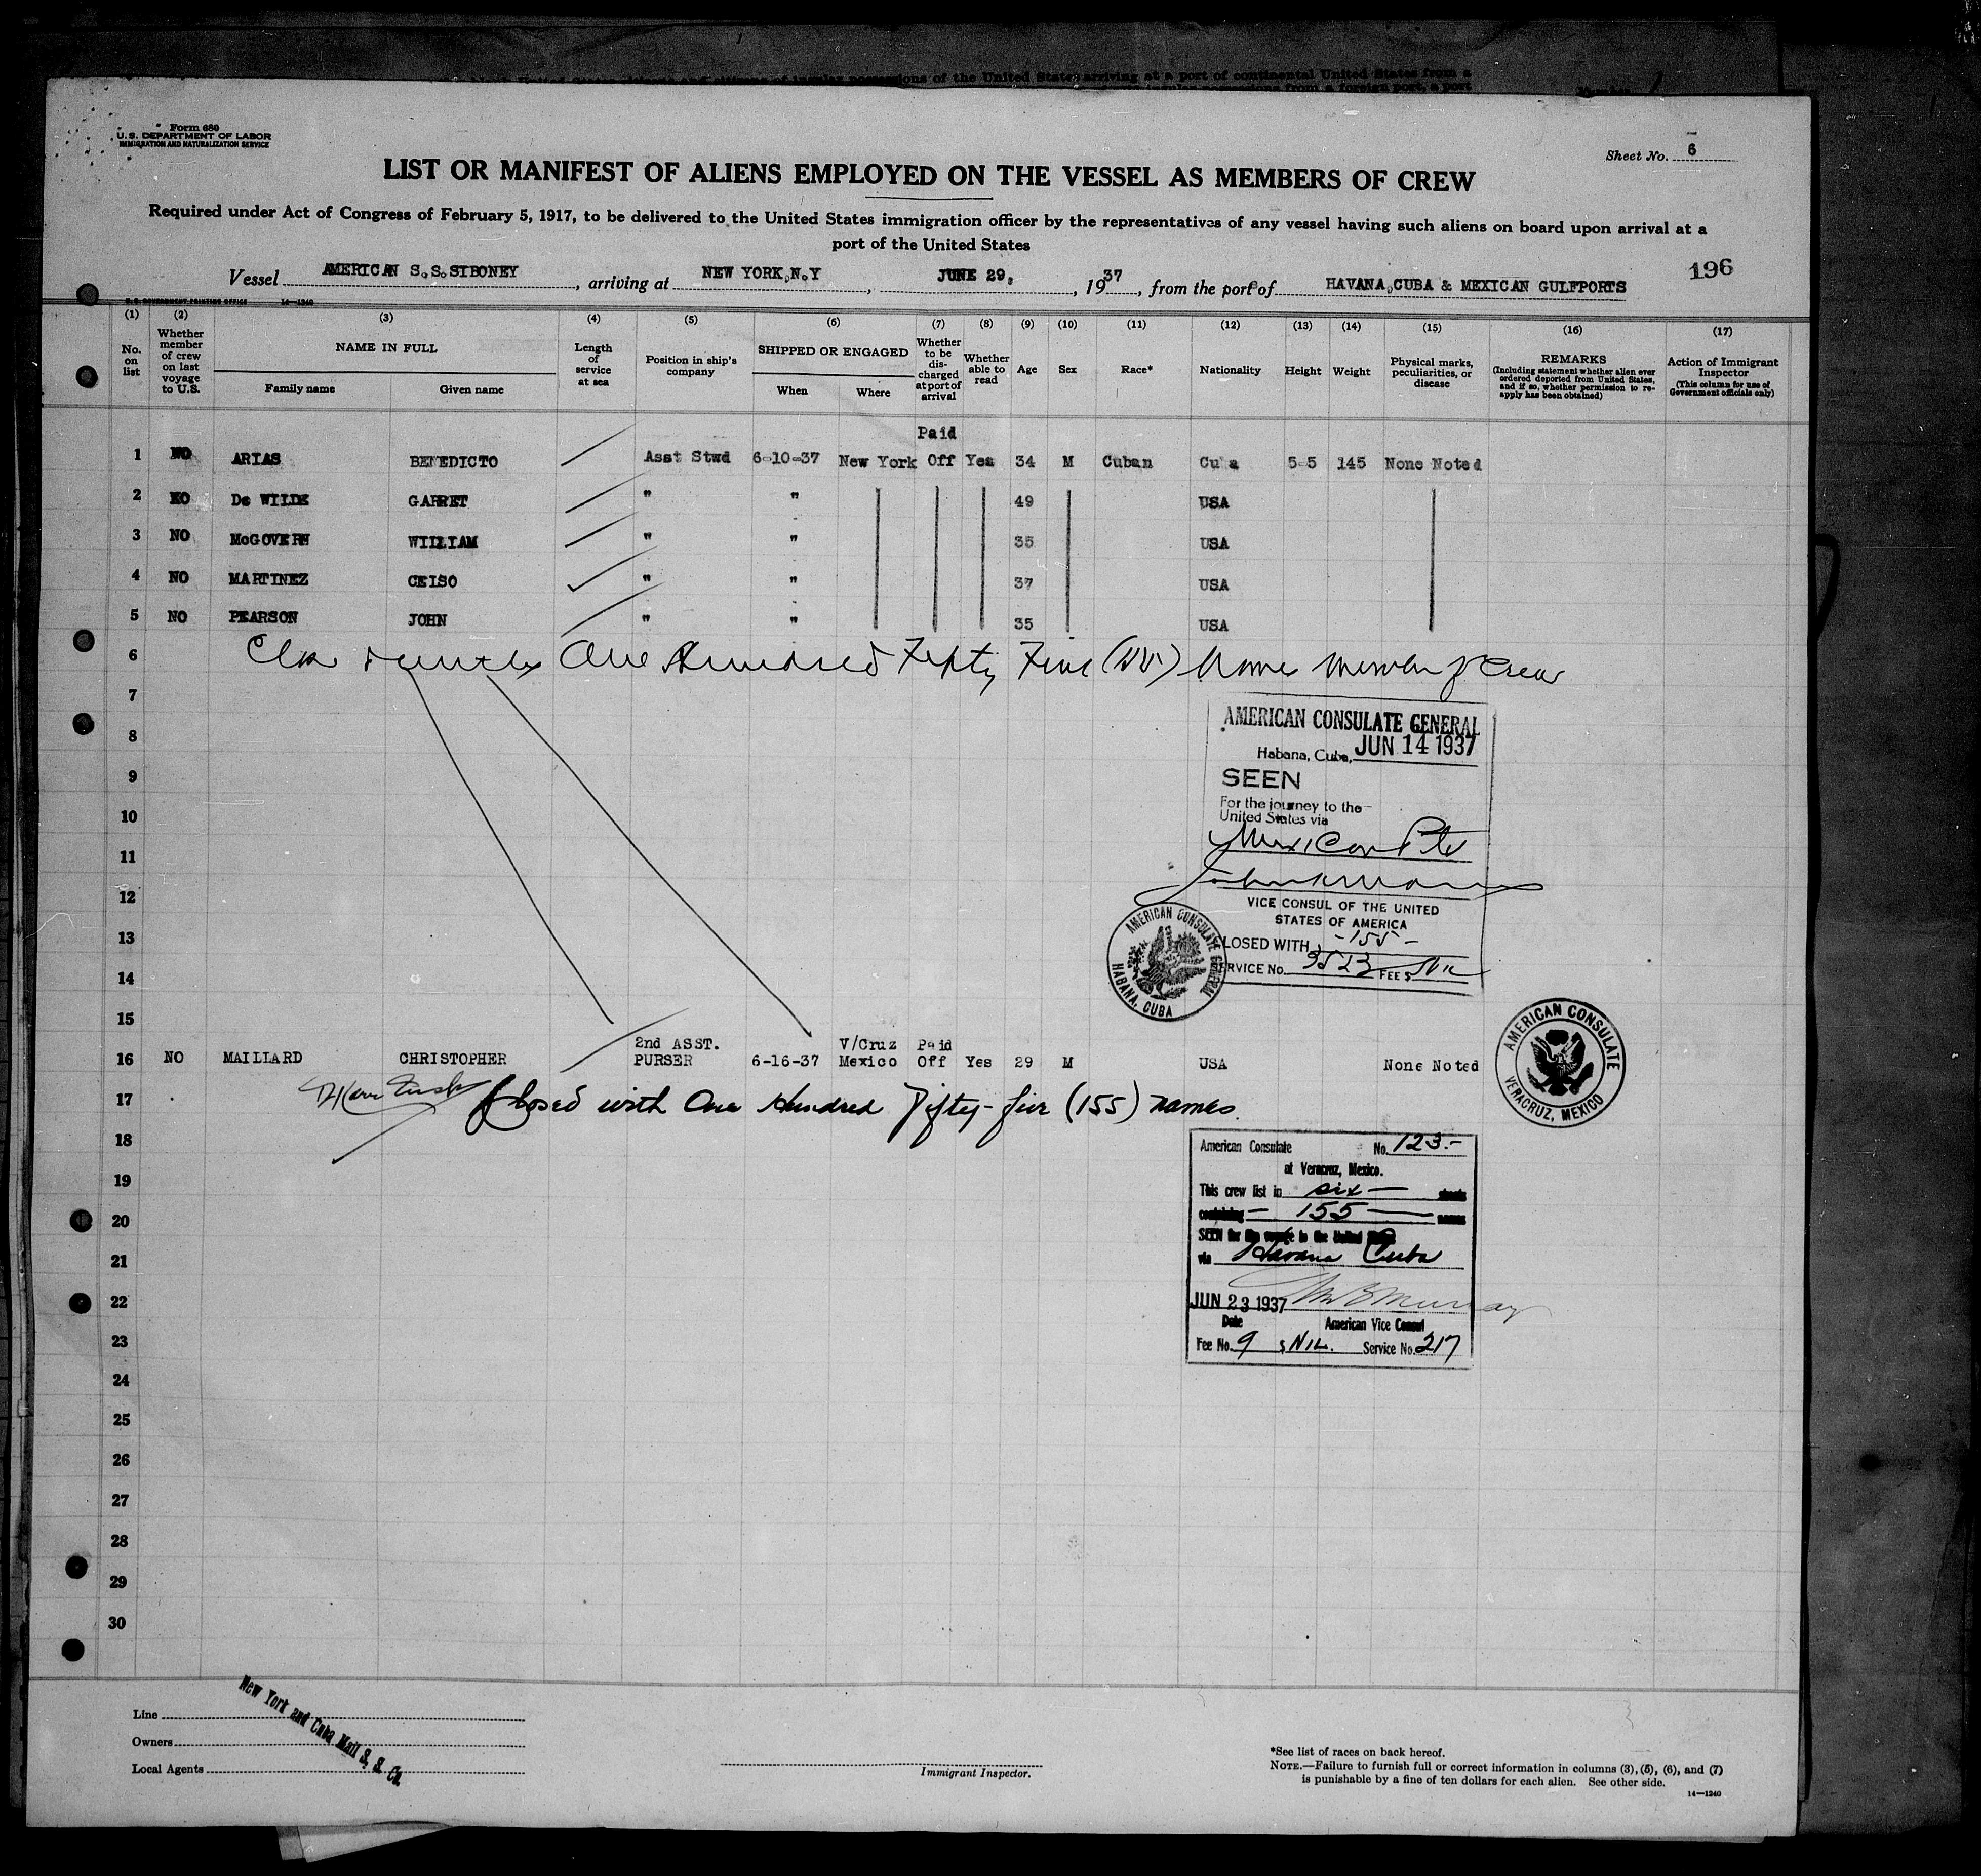 Form 680
U. S. DEPARTMENT OF LABOR
IMMIGRATION AND NATURALIZATION SERVICE
Sheet No. 6
LIST OR MANIFEST OF ALIENS EMPLOYED ON THE VESSEL AS MEMBERS OF CREW
Required under Act of Congress of February 5, 1917, to be delivered to the United States immigration officer by the representatives of any vessel having such aliens on board upon arrival at a
port of the United States
Vessel AMERICAN S.S.SIBONEY, arriving at NEW YORK,N.Y, JUNE 29, 1937, from the port of HAVANA,CUBA & MEXICAN GULFPORTS
196
U. S. GOVERNMENT PRINTING OFFICE 14—1240
(1) No. on list
(2) Whether member of crew on last voyage to U.S.
(3) NAME IN FULL Family name Given name
(4) Length of service at sea
(5) Position in ship's company
(6) SHIPPED OR ENGAGED When Where
(7) Whether to be discharged at port of arrival
(8) Whether able to read
(9) Age
(10) Sex
(11) Race*
(12) Nationality
(13) Height
(14) Weight
(15) Physical marks, peculiarities, or disease
(16) REMARKS (Including statement whether alien ever ordered deported from United States, and if so, whether permission to re-apply has been obtained)
(17) Action of Immigrant Inspector (This column for use of Government officials only)
Paid
1 NO ARIAS BENEDICTO Asst Stwd 6-10-37 New York Off Yes 34 M Cuban Cu a 5-5 145 None Noted
2 NO De WILDE GARRET " " 49 USA
3 NO McGOVERN WILLIAM " " 35 USA
4 NO MARTINEZ CELSO " " 37 USA
5 NO PEARSON JOHN " " 35 USA
6 One Hundred Fifty Five (155) Names Member of Crew
7
AMERICAN CONSULATE GENERAL
8
Habana, Cuba, JUN 14 1937
9
SEEN
For the journey to the
United States via
10
Mexican Pts
11
12
VICE CONSUL OF THE UNITED
STATES OF AMERICA
13
LOSED WITH -155-
14
ERVICE No. 9523 FEE $ Nil
AMERICAN CONSULATE GENERAL HABANA, CUBA
15
2nd ASST. V/Cruz Paid
16 NO MAILLARD CHRISTOPHER PURSER 6-16-37 Mexico Off Yes 29 M USA None Noted
AMERICAN CONSULATE VERACRUZ, MEXICO
17 Closed with One Hundred Fifty-five (155) names.
18
American Consulate No. 123.-
at Veracruz, Mexico.
19
This crew list in six — sheets
20
containing — 155 — names
SEEN for the voyage to the United States
21
via Havana Cuba
22
JUN 23 1937 Murray
Date American Vice Consul
23
Fee No. 9 $ NIL. Service No. 217
24
25
26
27
28
29
30
Line
Owners
Local Agents
New York and Cuba Mail S. S. Co.
Immigrant Inspector.
*See list of races on back hereof.
NOTE.—Failure to furnish full or correct information in columns (3), (5), (6), and (7)
is punishable by a fine of ten dollars for each alien. See other side.
14—1240